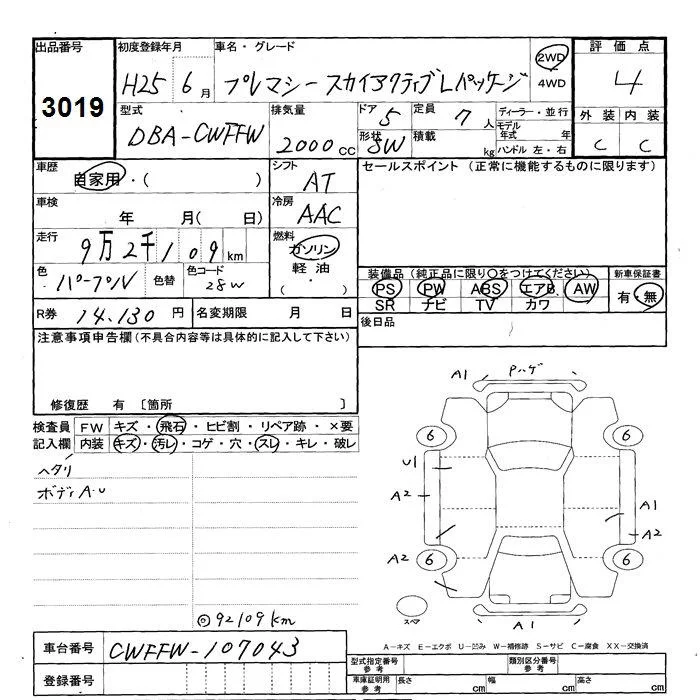 出品番号 初度登録年月 車名・グレード 評価点
3019
H25 6月 プレマシー スカイアクティブLパッケージ 2WD 4WD 4
型式 排気量 ドア 定員 ディーラー・並行 外装 内装
DBA-CWFFW 2000cc 5 7人 モデル年式 年
形状 SW 積載 kg ハンドル 左・右 C C
車歴 自家用・( ) シフト AT セールスポイント (正常に機能するものに限ります)
車検 年 月( 日) 冷房 AAC
走行 9万2千109km 燃料 ガソリン 軽油 ( ・ )
色 パープル 色替 色コード 28W
装備品(純正品に限り○をつけてください) 新車保証書
PS PW ABS エアB AW 有・無
SR ナビ TV カワ
R券 14.130円 名変期限 月 日 後日品
注意事項申告欄(不具合内容等は具体的に記入して下さい)
修復歴 有 〔箇所 〕
検査員 FW キズ・飛石・ヒビ割・リペア跡・×要
記入欄 内装 キズ・汚レ・コゲ・穴・スレ・キレ・破レ
ヘタリ
ボディA.U
◎92109km
A1 Pハゲ
6 6
U1
A2 A1
A2
A2 6 6
スペア A1
車台番号 CWFFW-107043
A-キズ E-エクボ U-凹み W-補修跡 S-サビ C-腐食 XX-交換済
型式指定番号 参考 類別区分番号 参考
登録番号 車庫証明用 参考 長さ cm 幅 cm 高さ cm